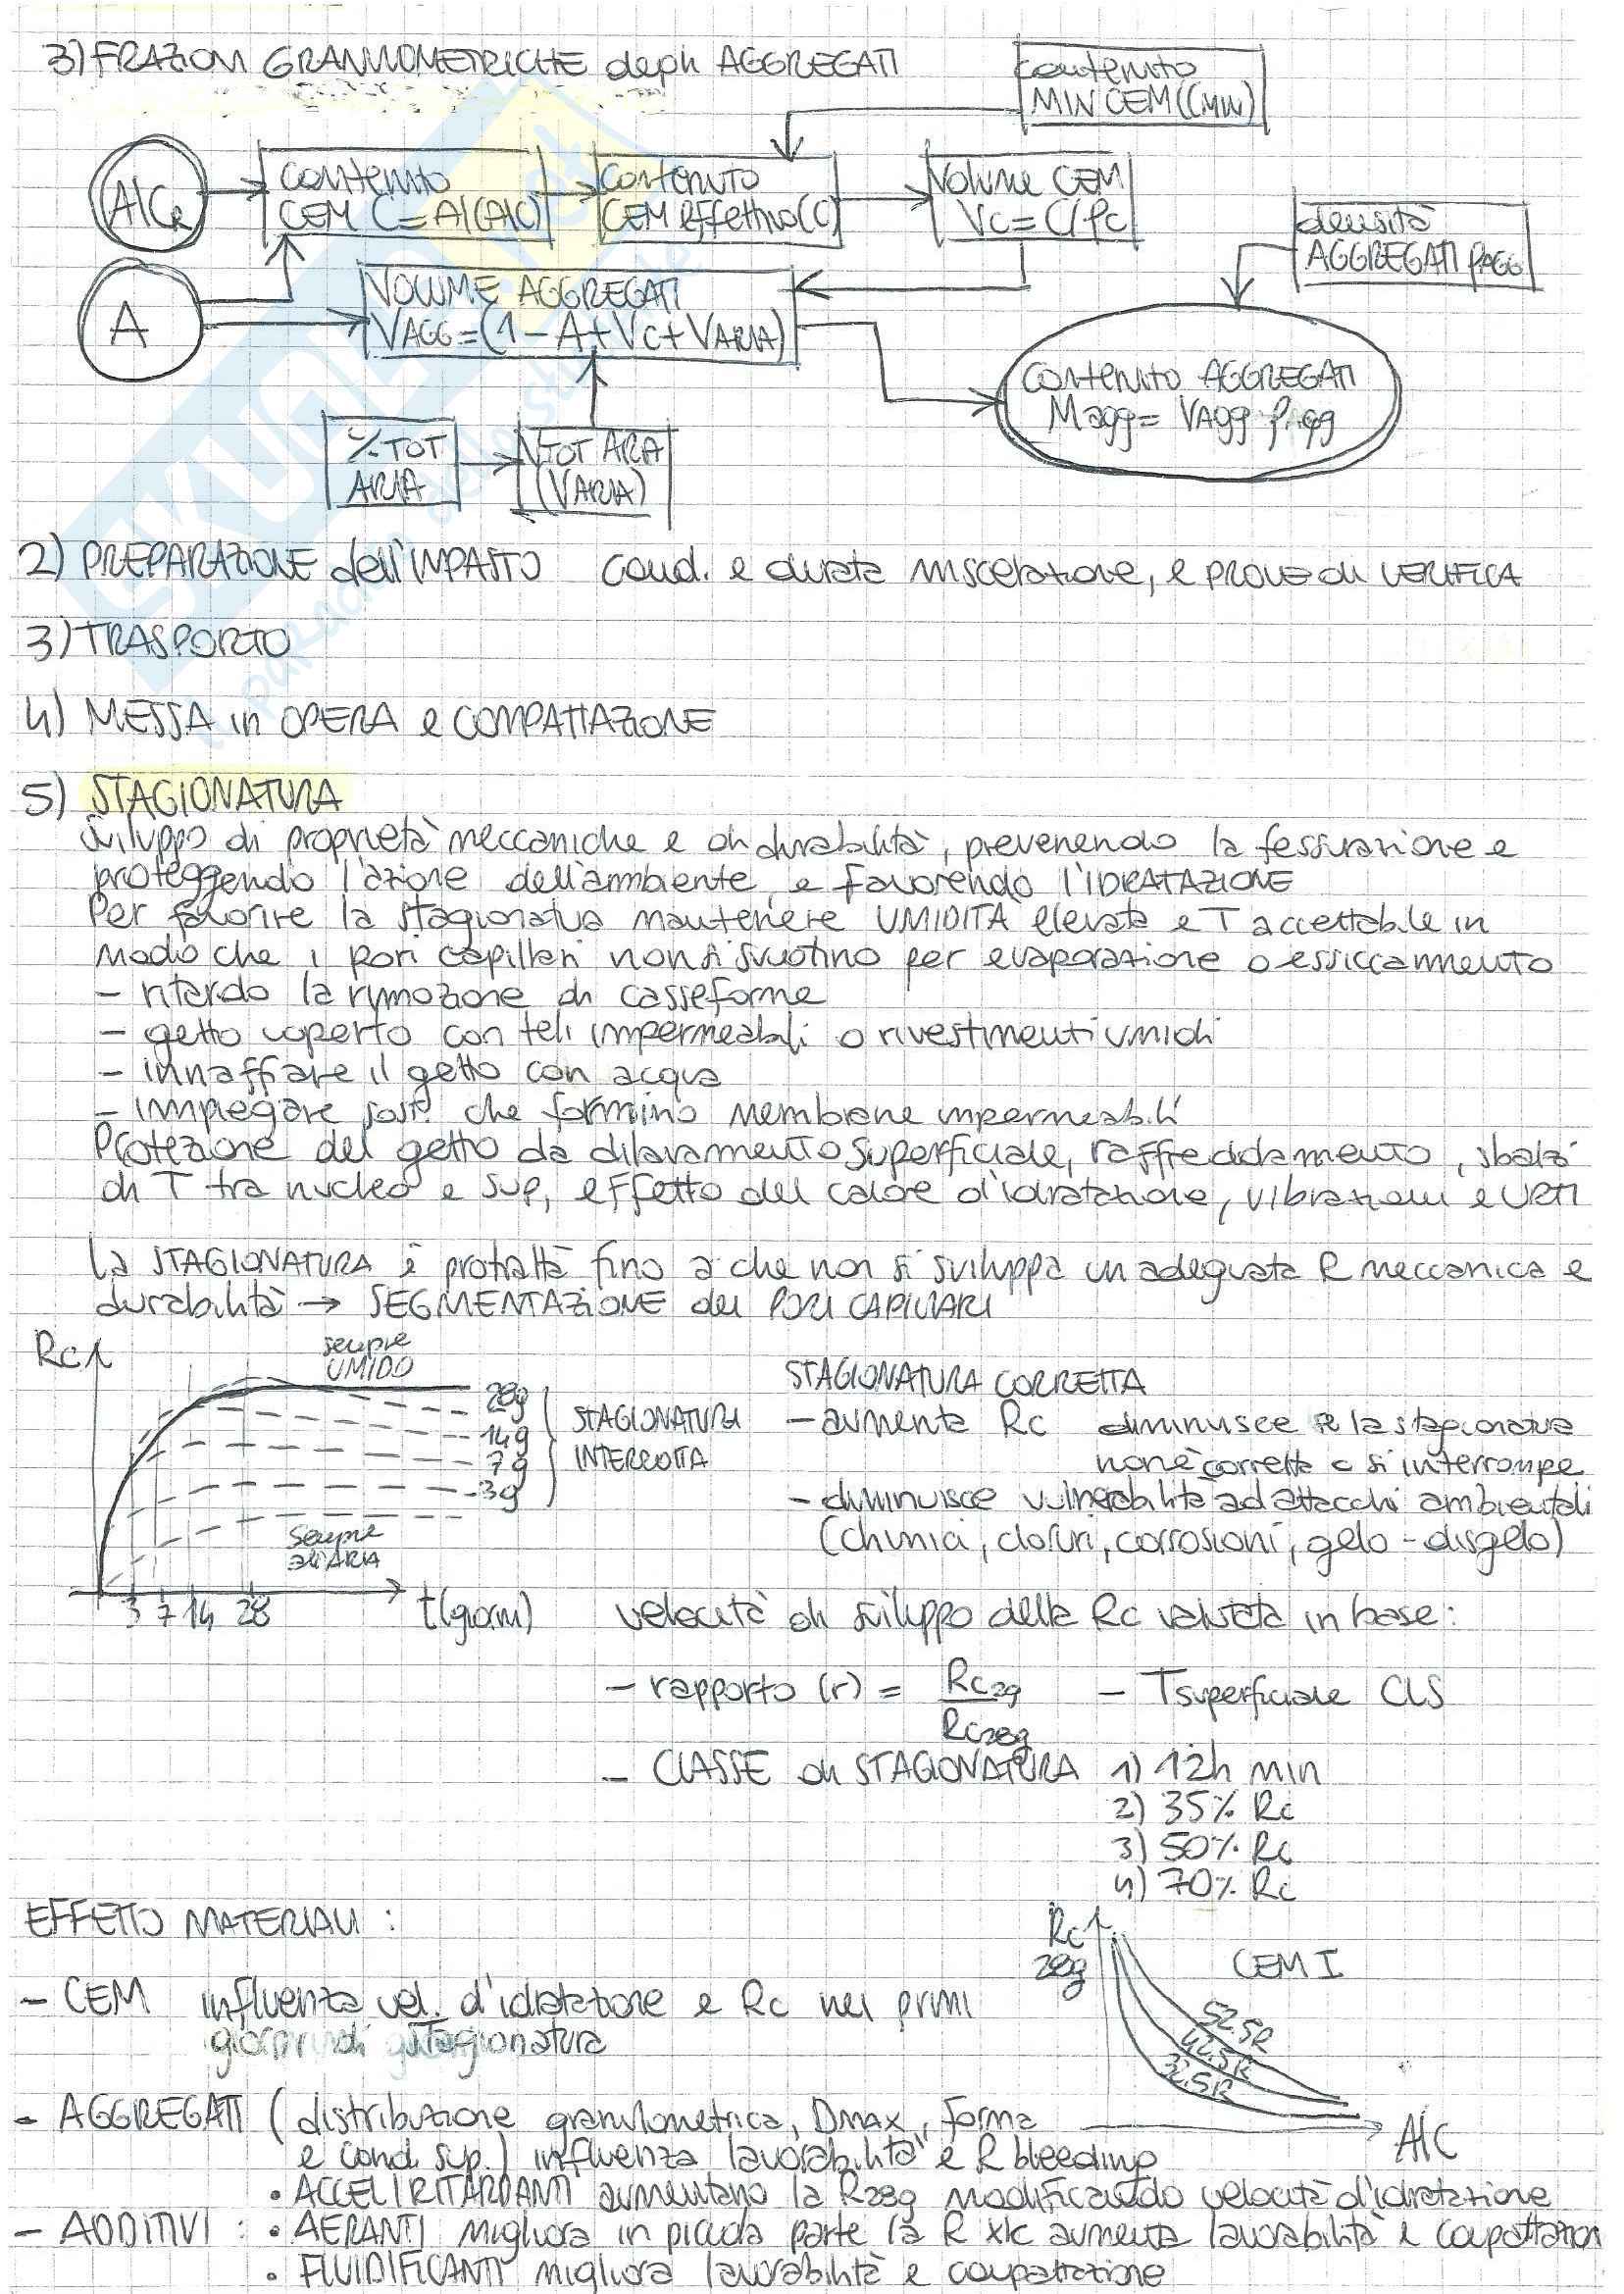 3) FRAZIONI GRANULOMETRICHE degli AGGREGATI
contenuto
MIN CEM (CMIN)
A/Ce
contenuto
CEM C = A/(A/C)
contenuto
CEM effettivo (C)
Volume CEM
Vc = C/ρc
densità
AGGREGATI ρAGG
A
VOLUME AGGREGATI
VAGG = (1 - A + Vc + VARIA)
contenuto AGGREGATI
Magg = Vagg ρagg
% TOT
ARIA
V TOT ARIA
(VARIA)
2) PREPARAZIONE dell'IMPASTO cond. e durata miscelazione, e PROVE di VERIFICA
3) TRASPORTO
4) MESSA in OPERA e COMPATTAZIONE
5) STAGIONATURA
sviluppo di proprietà meccaniche e di durabilità, prevenendo la fessurazione e
proteggendo l'azione dell'ambiente, e favorendo l'IDRATAZIONE
Per favorire la stagionatura mantenere UMIDITÀ elevata e T accettabile in
modo che i pori capillari non si svuotino per evaporazione o essiccamento
- ritardo la rimozione di casseforme
- getto coperto con teli impermeabili o rivestimenti umidi
- innaffiare il getto con acqua
- impiegare sost. che formino membrane impermeabili
Protezione del getto da dilavamento superficiale, raffreddamento, sbalzi
di T tra nucleo e sup, effetto del calore d'idratazione, vibrazioni e URTI
la STAGIONATURA è protratta fino a che non si sviluppa un adeguata R meccanica e
durabilità → SEGMENTAZIONE dei PORI CAPILLARI
Rc
sempre
UMIDO
28g
14g
7g
3g
STAGIONATURA
INTERROTTA
sempre
all'ARIA
3 7 14 28 t(giorni)
STAGIONATURA CORRETTA
- aumenta Rc diminuisce se la stagionatura
non è corretta o si interrompe
- diminuisce vulnerabilità ad attacchi ambientali
(chimici, cloruri, corrosioni, gelo-disgelo)
velocità di sviluppo della Rc valutata in base:
- rapporto (r) = Rc2g / Rc28g - Tsuperficiale CLS
- CLASSE di STAGIONATURA 1) 12h min
2) 35% Rc
3) 50% Rc
4) 70% Rc
EFFETTO MATERIALI :
- CEM influenza vel. d'idratazione e Rc nei primi
giorni di stagionatura
Rc
28g
CEM I
52.5R
42.5R
32.5R
A/C
- AGGREGATI (distribuzione granulometrica, Dmax, forma
e cond. sup.) influenza lavorabilità e R bleeding
• ACCEL/RITARDANTI aumentano la R28g modificando velocità d'idratazione
- ADDITIVI : • AERANTI migliora in piccola parte la R xk aumenta lavorabilità e compattazion
• FLUIDIFICANTI migliora lavorabilità e compattazione